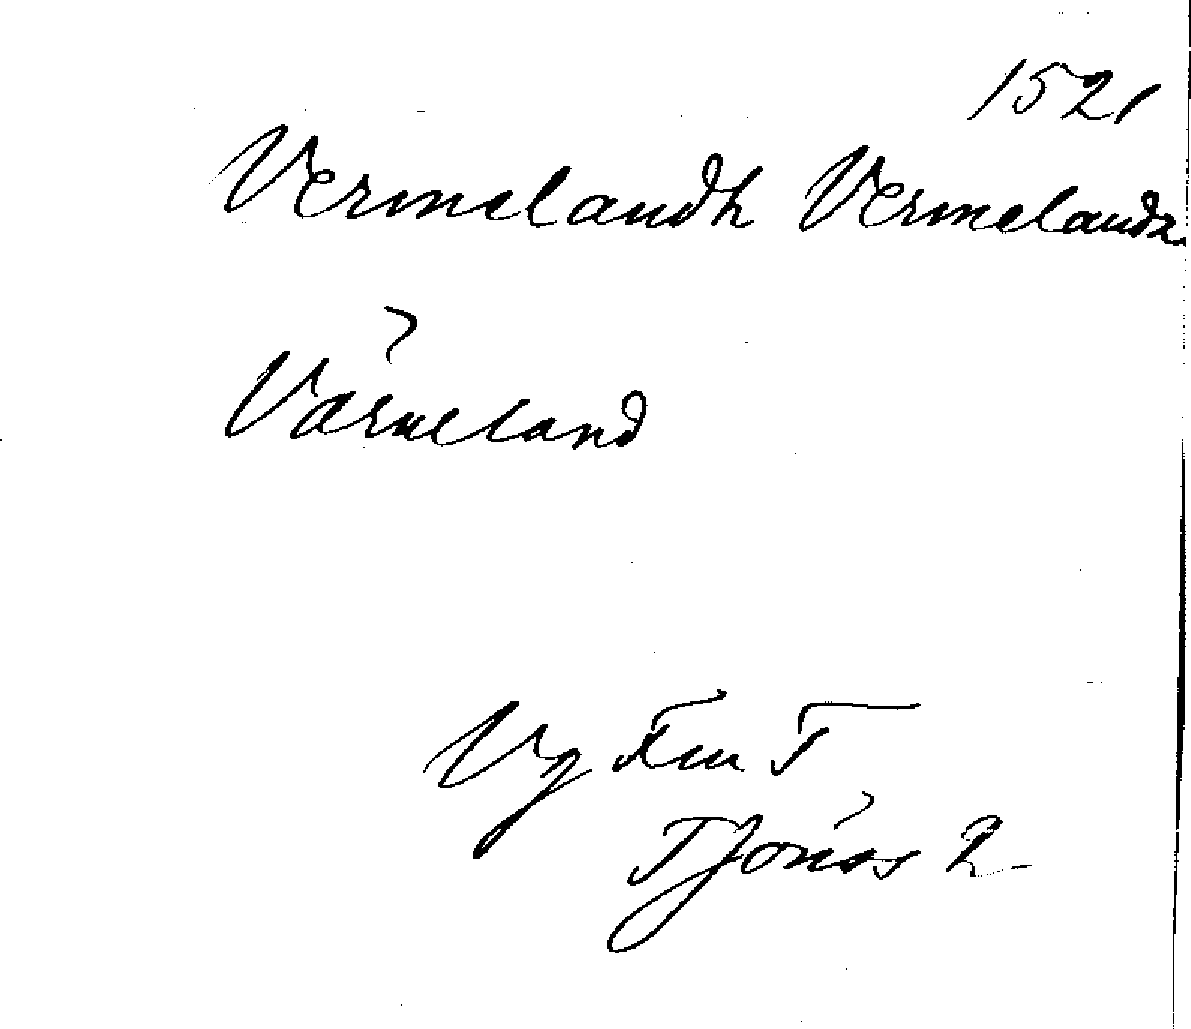 1521
Vermelandh Vermelandz
Värmeland
Vg
2